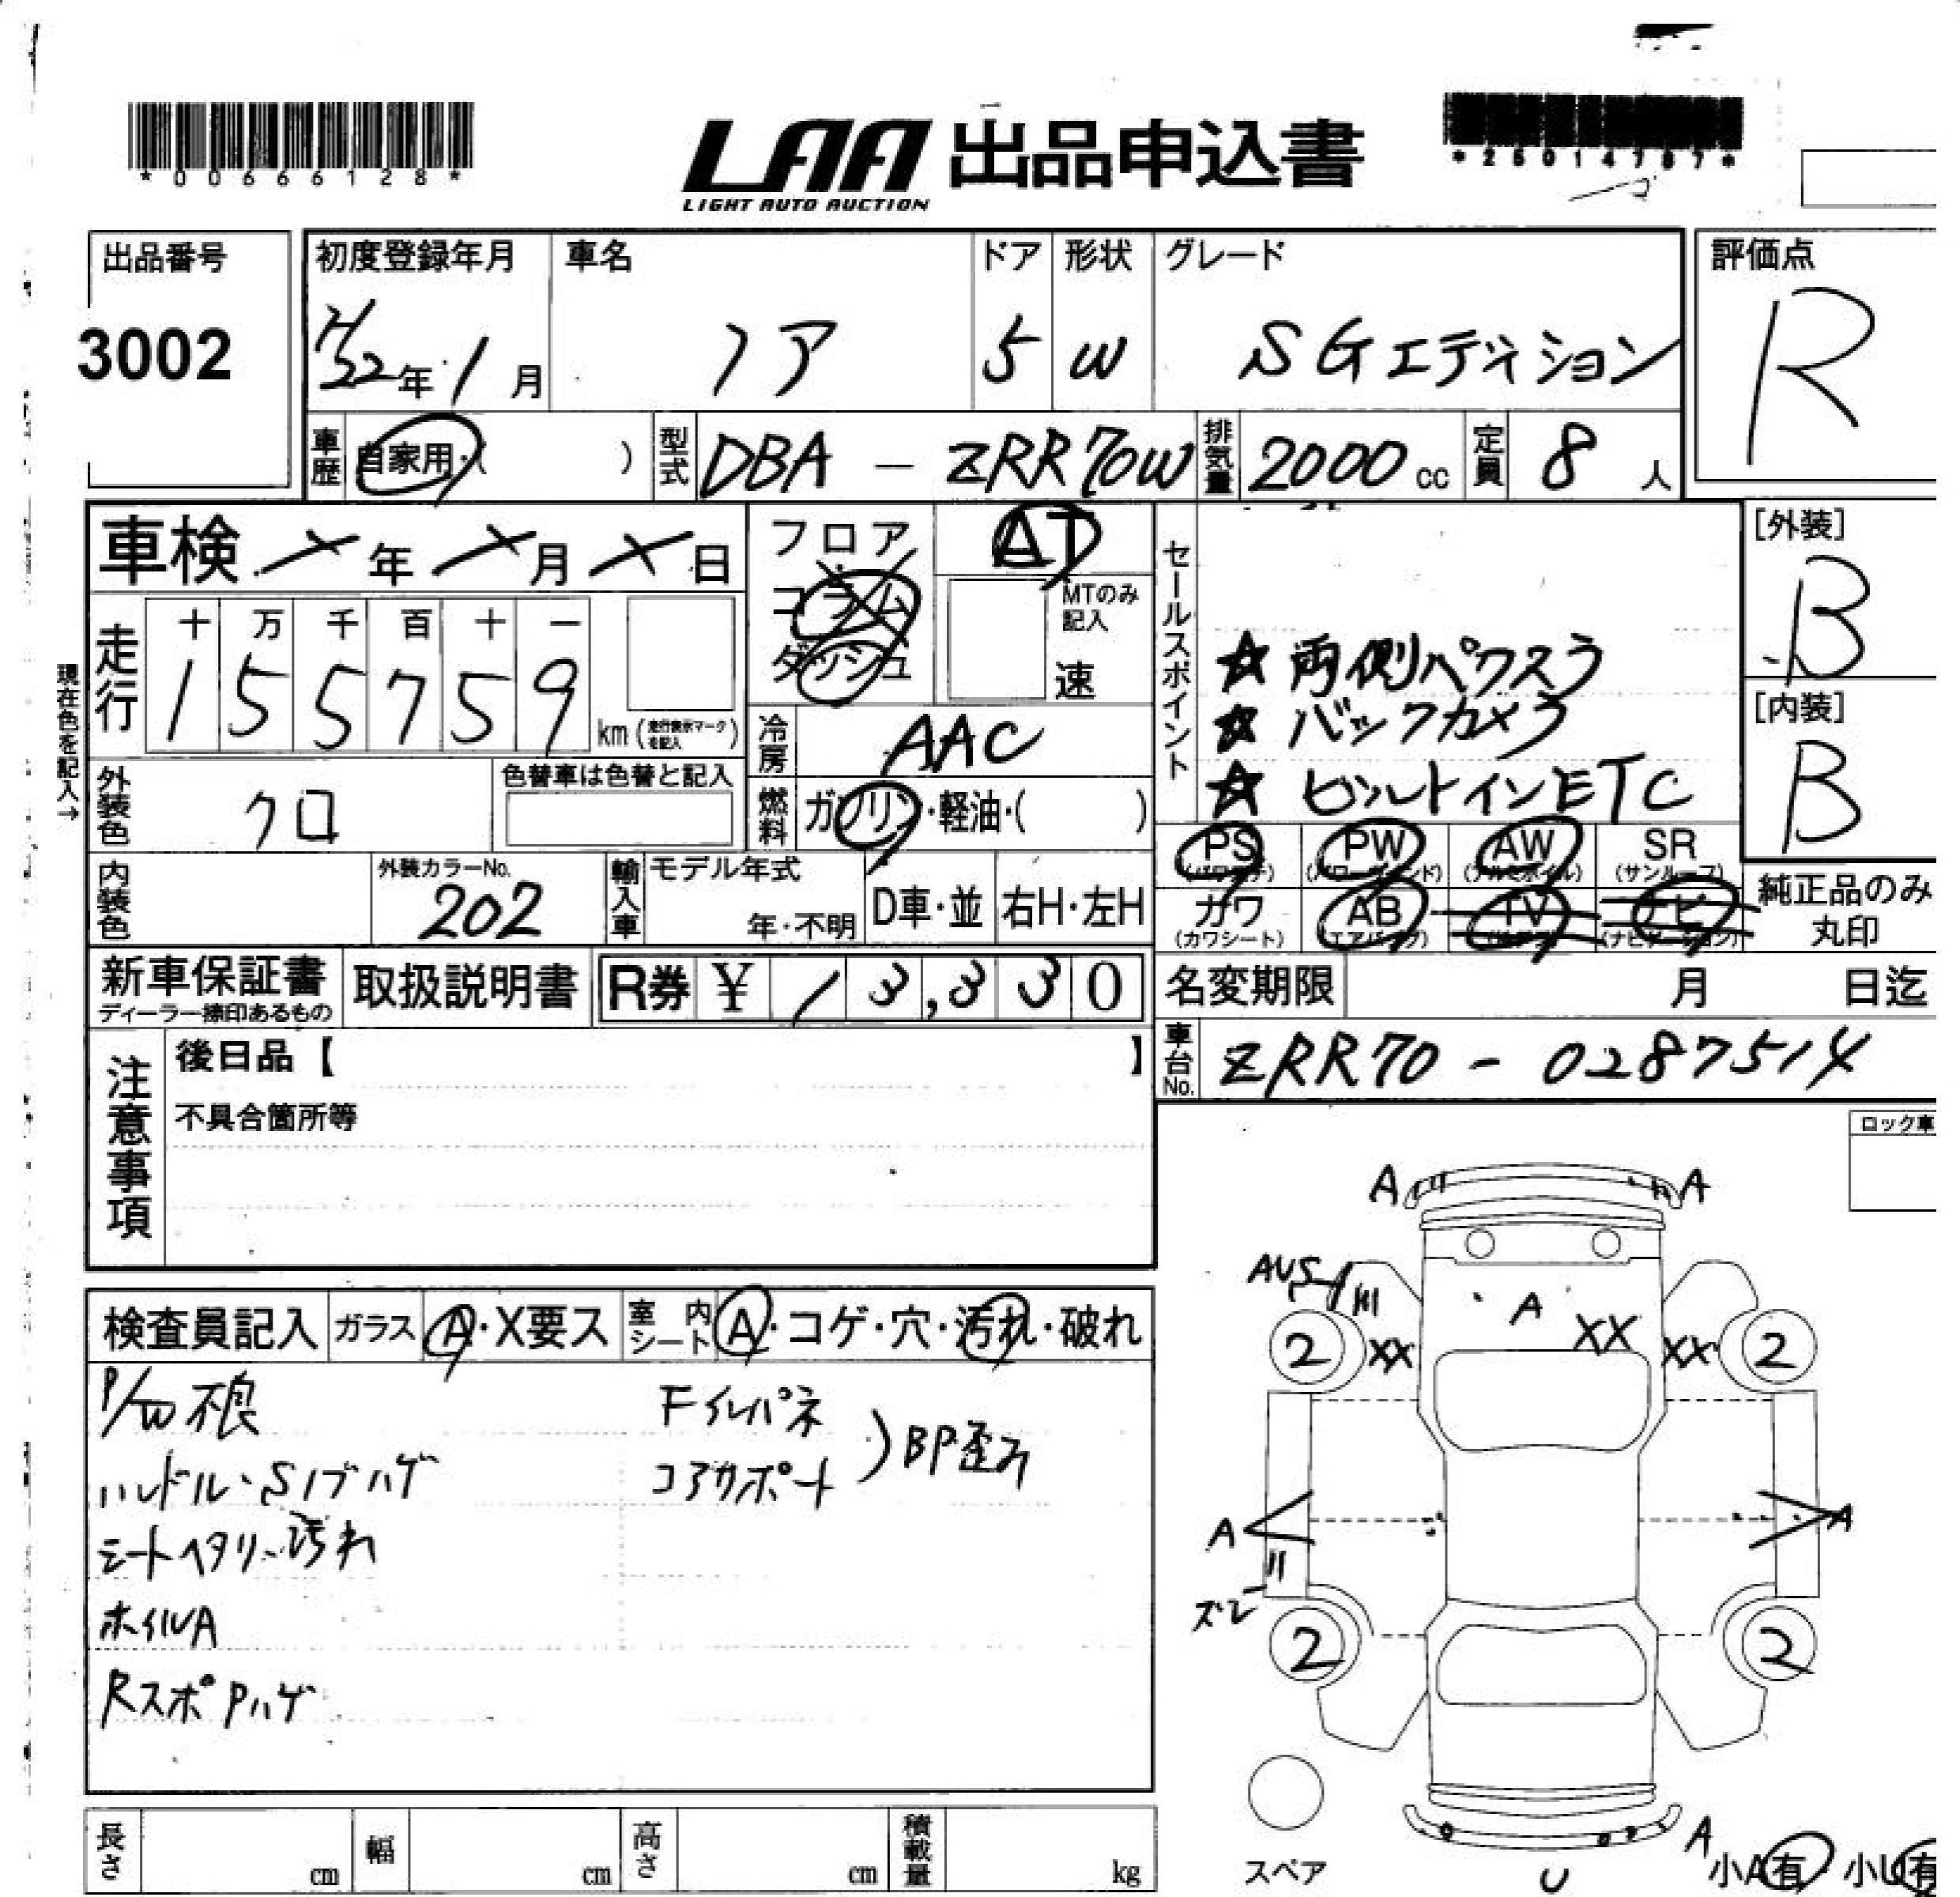 *00666128*
LAA 出品申込書
LIGHT AUTO AUCTION
*25014787*
出品番号
3002
初度登録年月
H22年1月
車名
ノア
ドア
5
形状
W
グレード
SGエディション
評価点
R
車歴
自家用・( )
型式
DBA - ZRR70W
排気量
2000 cc
定員
8 人
車検 年 月 日
フロア
コラム
ダッシュ
AT
MTのみ
記入
速
走行
十 万 千 百 十 一
1 5 5 7 5 9
km (走行表示マークを記入)
現在色を記入→
冷房
AAC
外装色
クロ
色替車は色替と記入
燃料
ガソリン・軽油・( )
内装色
外装カラーNo.
202
輸入車
モデル年式
年・不明
D車・並
右H・左H
セールスポイント
☆ 両側パワスラ
☆ バックカメラ
☆ ビルトインETC
[外装]
B
[内装]
B
PS
(パワステ)
PW
(パワーウインド)
AW
(アルミホイル)
SR
(サンルーフ)
カワ
(カワシート)
AB
(エアバッグ)
TV
ナビ
(ナビゲーション)
純正品のみ
丸印
新車保証書
ディーラー捺印あるもの
取扱説明書
R券 ¥ 13,330
名変期限 月 日迄
車台No.
ZRR70 - 0287514
注意事項
後日品【 】
不具合箇所等
ロック車
検査員記入
ガラス
A・X要ス
室内
シート
A・コゲ・穴・汚れ・破れ
P/W不良
ハンドル・Sノブハゲ
シートヘタリ・汚れ
ホイルA
RスポPハゲ
Fインパネ
コアサポート
)BP歪み
A A
AUS
A
XX XX XX
2 2
A A
ズレ
2 2
スペア
A
U
小A有 小U有
長さ cm
幅 cm
高さ cm
積載量 kg